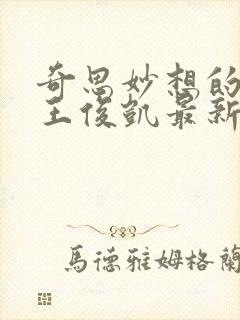 奇思妙想的
王俊凱最新
馬德雅姆格蘭